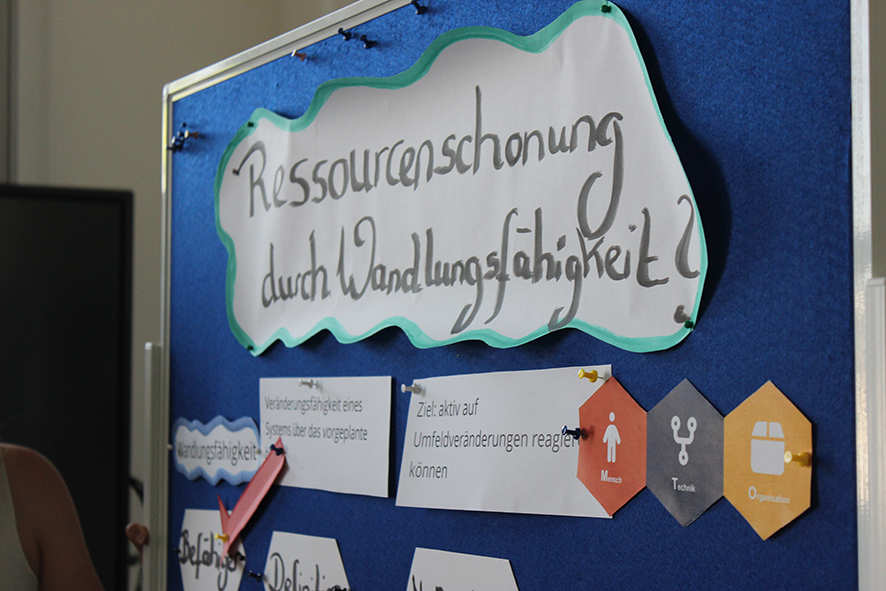 Ressourcenschonung
durch Wandlungsfähigkeit?
Wandlungsfähigkeit
Veränderungsfähigkeit eines
Systems über das vorgeplante
Ziel: aktiv auf
Umfeldveränderungen reagieren
können
Mensch
Technik
Organisation
Befähiger